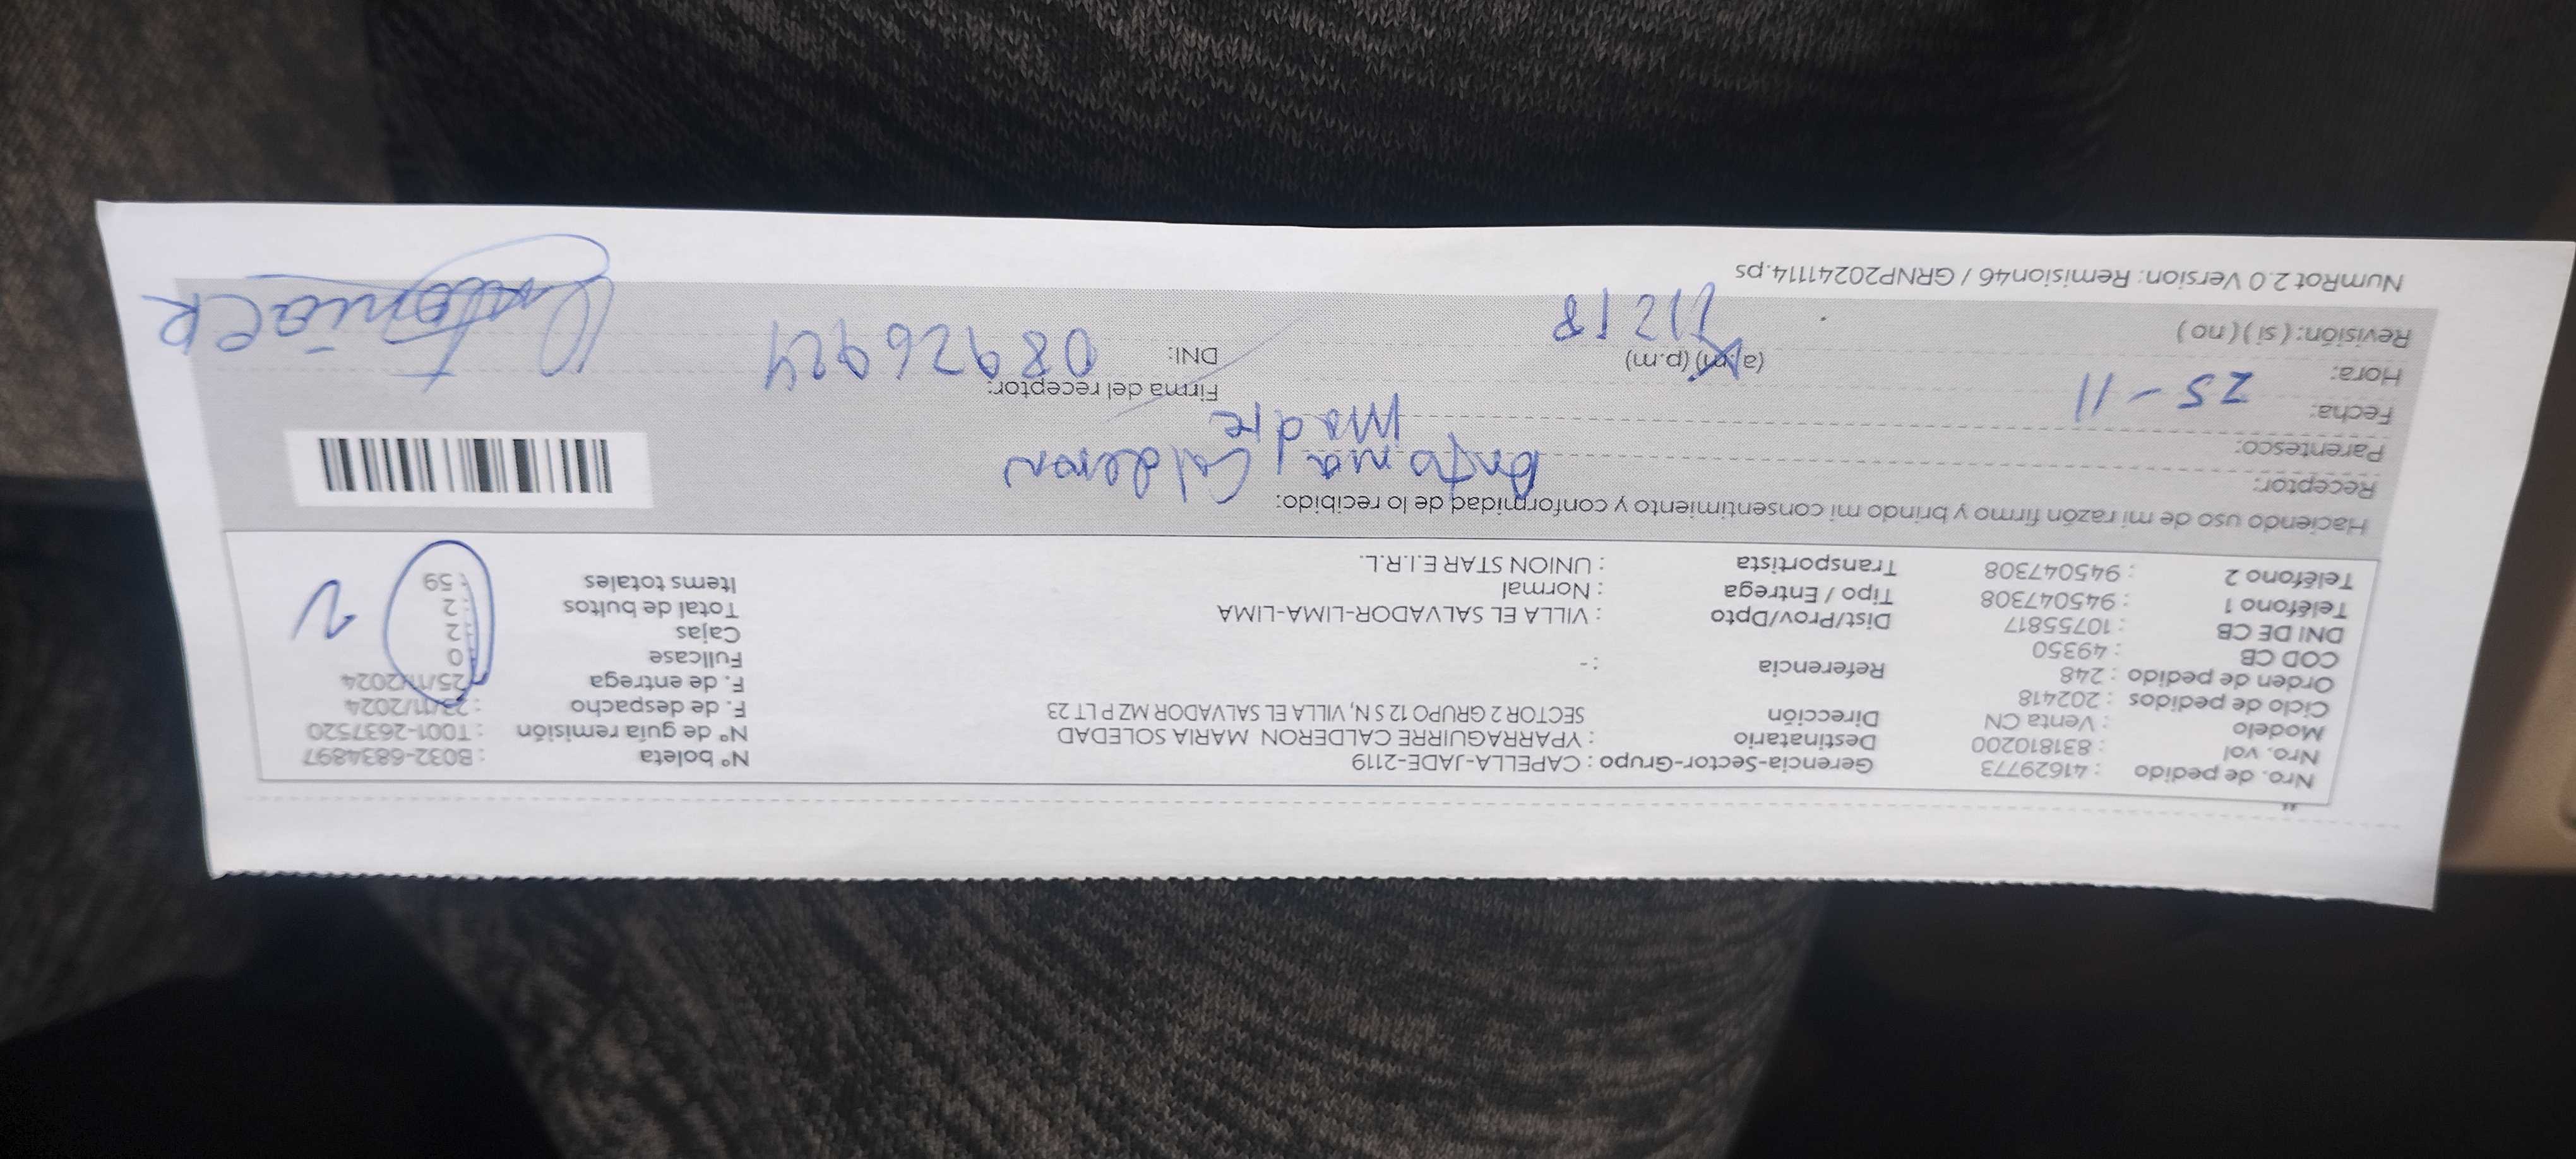 Nro. de pedido : 41629773 Gerencia-Sector-Grupo : CAPELLA-JADE-2119 N° boleta : B032-6834897
Nro. vol : 831810200 Destinatario : YPARRAGUIRRE CALDERON MARIA SOLEDAD N° de guía remisión : T001-2637520
Modelo : Venta CN Dirección SECTOR 2 GRUPO 12 S N, VILLA EL SALVADOR MZ P LT 23 F. de despacho : 23/11/2024
Ciclo de pedidos : 202418 F. de entrega 25/11/2024
Orden de pedido : 248 Referencia : - Fullcase 0
COD CB : 49350 Cajas : 2
DNI DE CB : 10755817 Dist/Prov/Dpto : VILLA EL SALVADOR-LIMA-LIMA Total de bultos : 2
Teléfono 1 : 945047308 Tipo / Entrega : Normal Items totales : 59
Teléfono 2 : 945047308 Transportista : UNION STAR E.I.R.L.
2
Haciendo uso de mi razón firmo y brindo mi consentimiento y conformidad de lo recibido:
Receptor: Antonia Calderon
Parentesco: Madre
Fecha: 25-11 Firma del receptor:
Hora: (a.m) (p.m) DNI: 08926924
Revisión: ( si ) ( no )
NumRot 2.0 Version: Remision46 / GRNP20241114.ps